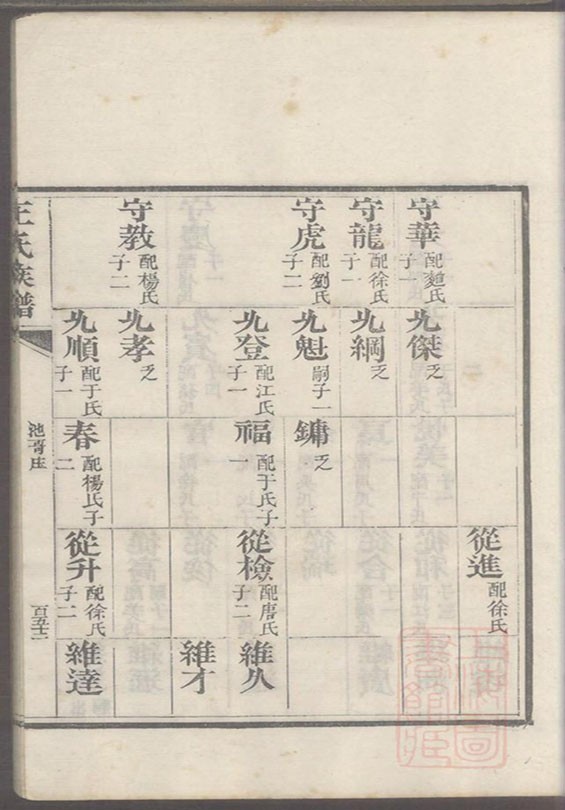 從進 配徐氏
守華 配趙氏 子一
九傑 乏
守龍 配徐氏 子一
九綱 乏
守虎 配劉氏 子二
九魁 嗣子一
鏞 乏
九登 配江氏 子一
福 配于氏 子一
從檢 配唐氏 子二
維久
維才
守教 配楊氏 子二
九孝 乏
九順 配于氏 子一
春 配楊氏 子二
從升 配徐氏 子二
維達
王氏族譜
百五十二